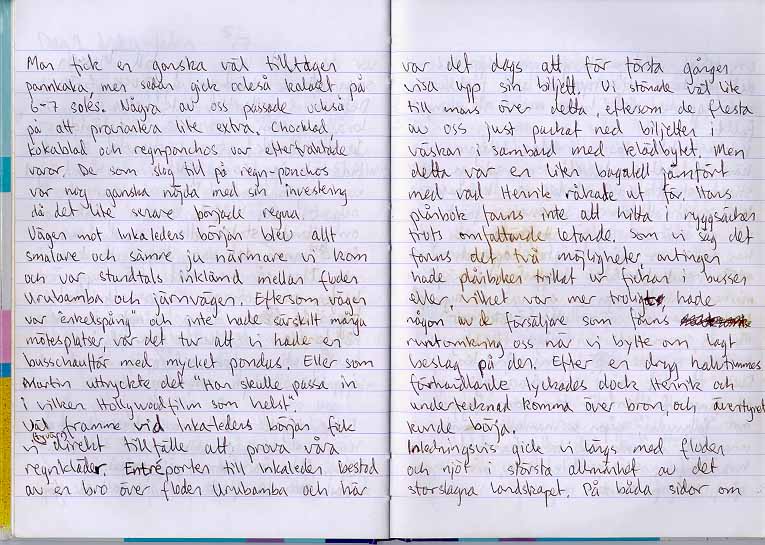 Man fick en ganska väl tilltagen
pannkaka, men sedan gick också kalaset på
6-7 soles. Några av oss passade också
på att proviantera lite extra. Choklad,
kokablad och regn-ponchos var eftertraktade
varor. De som slog till på regn-ponchos
var nog ganska nöjda med sin investering
då det lite senare började regna.
Vägen mot Inkaledens början blev allt
smalare och sämre ju närmare vi kom
och var stundtals inklämd mellan floden
Urubamba och järnvägen. Eftersom vägen
var "enkelspårig" och inte hade särskilt många
mötesplatser, var det tur att vi hade en
busschaufför med mycket pondus. Eller som
Martin uttryckte det "Han skulle passa in
i vilken Hollywoodfilm som helst".
Väl framme vid Inkaledens början fick
vi direkt tillfälle att prova våra
regnkläder. Entréporten till inkaleden bestod
av en bro över floden Urubamba och här
var det dags att för första gången
visa upp sin biljett. Vi stönade väl lite
till mans över detta, eftersom de flesta
av oss just packat ned biljetten i
väskan i samband med klädbytet. Men
detta var en liten bagatell jämfört
med vad Henrik råkade ut för. Hans
plånbok fanns inte att hitta i ryggsäcken
trots omfattande letande. Som vi såg det
fanns det två möjligheter, antingen
hade plånboken trillat ur fickan i bussen
eller, vilket var mer troligt, hade
någon av de försäljare som fanns
runtomkring oss när vi bytte om lagt
beslag på den. Efter en dryg halvtimmes
förhandlande lyckades dock Henrik och
undertecknad komma över bron, och äventyret
kunde börja.
Inledningsvis gick vi längs med floden
och njöt i största allmänhet av det
storslagna landskapet. På båda sidor om